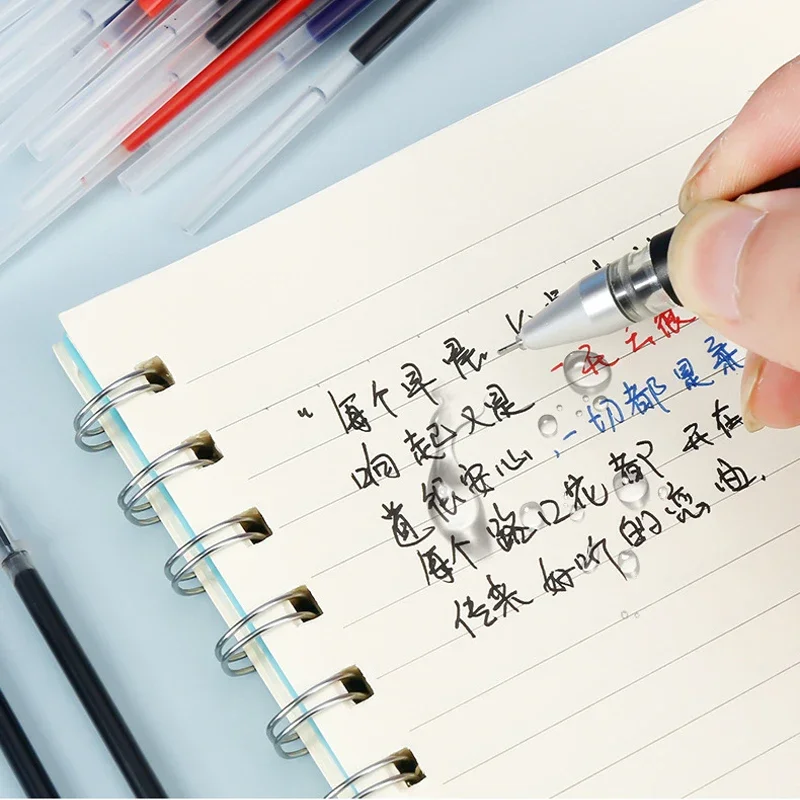 “每个早晨
响起又是 一天 云很
道很安心,一切都是柔
每个路口花都开在
传来好听的恋曲.